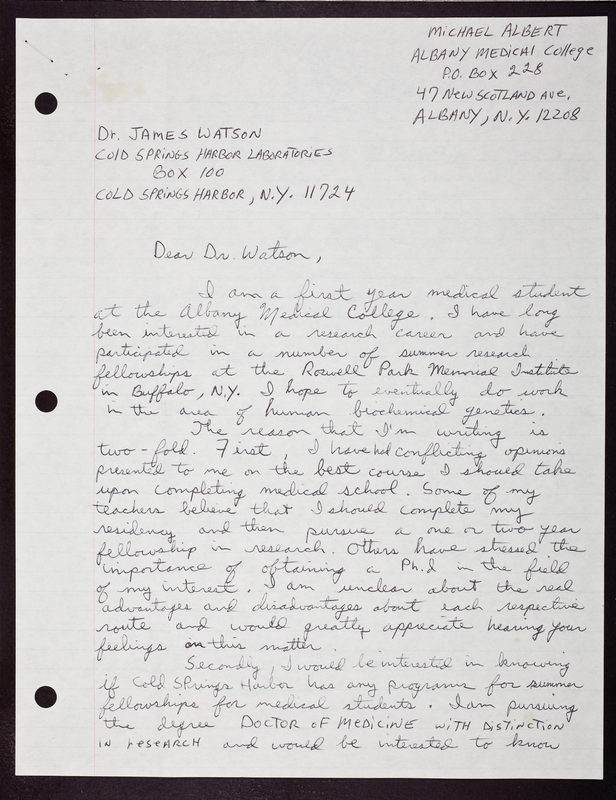 MICHAEL ALBERT
ALBANY MEDICAL College
P.O. BOX 228
47 NEW SCOTLAND AVE.
ALBANY, N.Y. 12208
Dr. JAMES WATSON
COLD SPRINGS HARBOR LABORATORIES
BOX 100
COLD SPRINGS HARBOR, N.Y. 11724
Dear Dr. Watson,
I am a first year medical student
at the Albany Medical College. I have long
been interested in a research career and have
participated in a number of summer research
fellowships at the Roswell Park Memorial Institute
in Buffalo, N.Y. I hope to eventually do work
in the area of human biochemical genetics.
The reason that I'm writing is
two-fold. First, I have had conflicting opinions
presented to me on the best course I should take
upon completing medical school. Some of my
teachers believe that I should complete my
residency and then pursue a one or two year
fellowship in research. Others have stressed the
importance of obtaining a Ph.D in the field
of my interest. I am unclear about the real
advantages and disadvantages about each respective
route and would greatly appreciate hearing your
feelings on this matter.
Secondly, I would be interested in knowing
if Cold Springs Harbor has any programs for summer
fellowships for medical students. I am pursuing
the degree DOCTOR OF MEDICINE WITH DISTINCTION
IN RESEARCH and would be interested to know